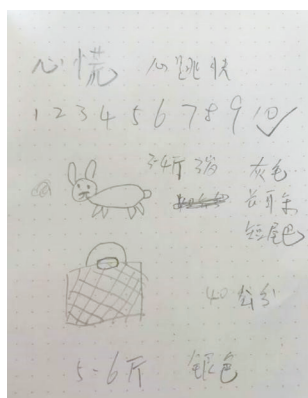 心慌 心跳快
1 2 3 4 5 6 7 8 9 10
3-4斤 3岁 灰毛
长耳朵
短尾巴
40公分
5-6斤 银色